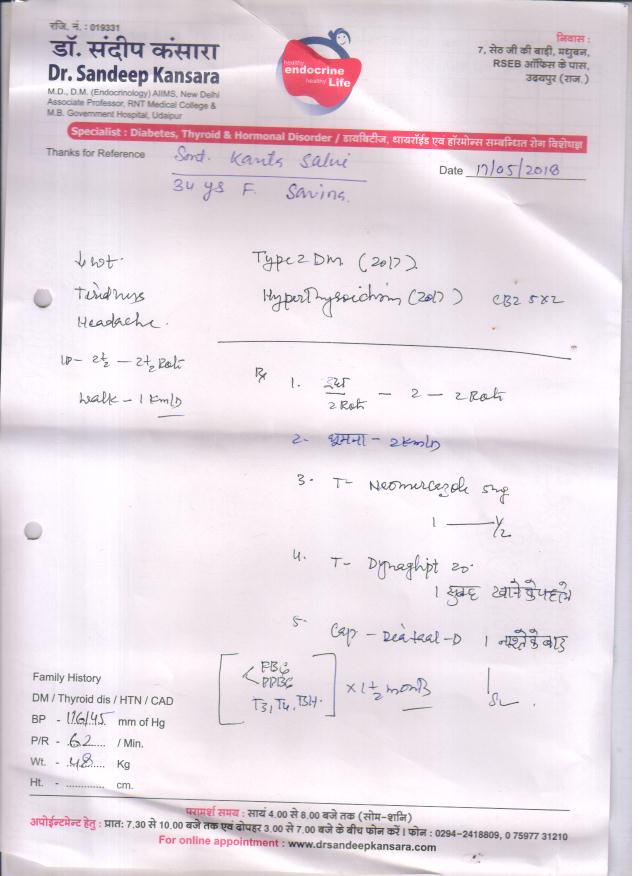 रजि. नं. : 019331
डॉ. संदीप कंसारा
Dr. Sandeep Kansara
M.D., D.M. (Endocrinology) AIIMS, New Delhi
Associate Professor, RNT Medical College &
M.B. Government Hospital, Udaipur
healthy
endocrine
healthy Life
निवास :
7, सेठ जी की बाड़ी, मधुबन,
RSEB ऑफिस के पास,
उदयपुर (राज.)
Specialist : Diabetes, Thyroid & Hormonal Disorder / डायबिटीज, थायरॉईड एवं हॉरमोन्स सम्बन्धित रोग विशेषज्ञ
Thanks for Reference
Smt. Kanta Salvi
Date 17/05/2018
34 ys F. Savina.
↓ wt.
Type 2 DM (2017)
Hyperthyroidism (2017) CBZ 5x2
Headache.
2½ - 2½ Roti
Walk - 1 Km/D
Rx
1. दूध
2 Roti - 2 - 2 Roti
2. घूमना - 2 Km/D
3. T- Neomercazole 5mg
1 ——— 1/2
4. T- Dynaglipt 20.
1 सुबह खाने के पहले
5. Cap - -D 1 नाश्ते के बाद
FBG
PPBG
T3, T4, TSH.
x 1½ month
Family History
DM / Thyroid dis / HTN / CAD
BP - 116/45 mm of Hg
P/R - 62 / Min.
Wt. - 48 Kg
Ht. - ............ cm.
परामर्श समय : सायं 4.00 से 8.00 बजे तक (सोम-शनि)
अपोईन्टमेन्ट हेतु : प्रात: 7.30 से 10.00 बजे तक एवं दोपहर 3.00 से 7.00 बजे के बीच फोन करें। फोन : 0294-2418809, 0 75977 31210
For online appointment : www.drsandeepkansara.com